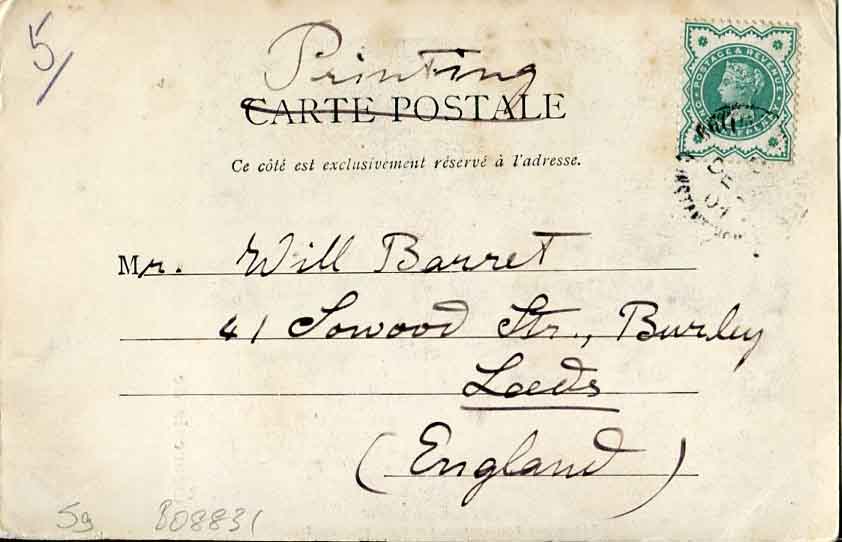 5/
Printing
CARTE POSTALE
Ce côté est exclusivement réservé à l'adresse.
POSTAGE & REVENUE
DE
Mr. Will Barret
41 Sowood Str., Burley
Leeds
(England)
5g B08831